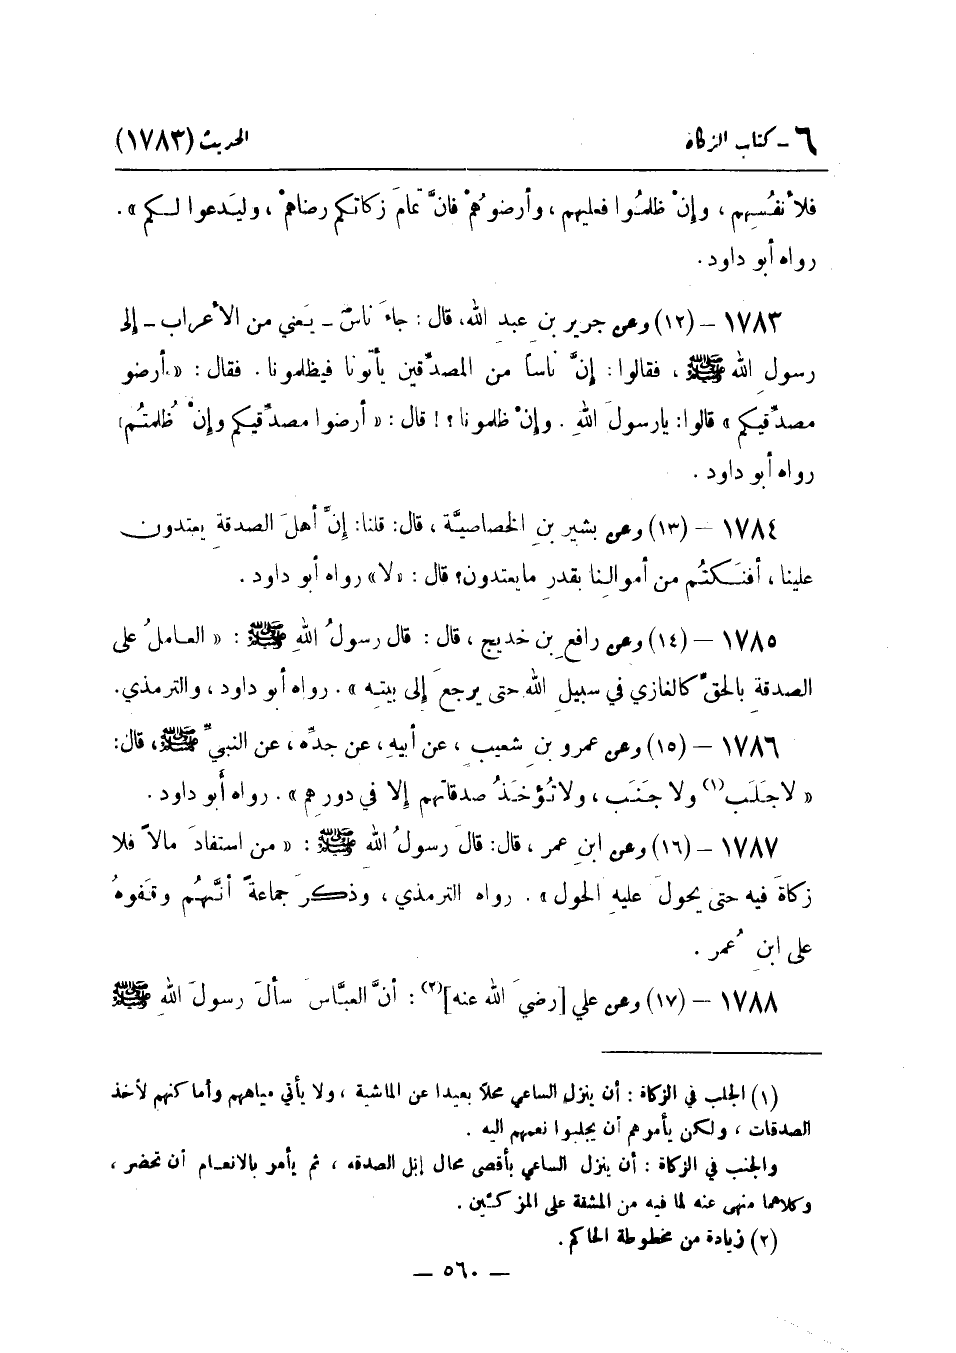 ٦ - كتاب الزكاة الحديث (١٧٨٣)
فلأنفُسِهِم ، وإنْ ظلمُوا فعليهم ، وأرضوهُمْ فانَّ تمامَ زكاتكم رضاهمْ ، وليَدعوا لكم » .
رواه أبو داود .
١٧٨٣ – (١٢) وعن جرير بنِ عبدِ الله، قال : جاءَ ناسٌ ـ يَعني من الأعراب ـ إلى
رسولِ الله ﷺ ، فقالوا : إنَّ ناساً من المصدِّقين يأتونا فيظلمونا . فقال : « أرضو
مصدِّقيكم » قالوا : يارسولَ اللهِ . وإنْ ظلمونا ؟ ! قال : « أرضوا مصدِّقيكم وإنْ ظُلمتُم»
رواه أبو داود .
١٧٨٤ – (١٣) وعن بشيرِ بنِ الخصاصيَّة ، قال : قلنا : إنَّ أهلَ الصدقةِ يعتدون
علينا ، أفنَكتُم من أموالِنا بقدرِ مايعتدون؟ قال : «لا» رواه أبو داود .
١٧٨٥ – (١٤) وعن رافعِ بن خديج ، قال : قال رسولُ اللهِ ﷺ : « العاملُ على
الصدقةِ بالحقِّ كالغازي في سبيلِ اللهِ حتى يرجعَ إلى بيتِه » . رواه أبو داود ، والترمذي.
١٧٨٦ – (١٥) وعن عمرو بنِ شعيبٍ ، عن أبيهِ، عن جدِّه، عن النبيِّ ﷺ ، قال :
« لاجَلَب(١) ولا جَنَب ، ولاتُؤخَذُ صدقاتهم إلا في دورهم » . رواه أبو داود .
١٧٨٧ – (١٦) وعن ابنِ عمر ، قال : قالَ رسولُ اللهِ ﷺ : « من استفادَ مالاً فلا
زكاةَ فيه حتى يحولَ عليهِ الحول » . رواه الترمذي ، وذكرَ جماعةً أنَّهُم وقَفوهُ
على ابنِ عُمر .
١٧٨٨ – (١٧) وعن علي [رضيَ الله عنه](٢) : أنَّ العبَّاسَ سألَ رسولَ اللهِ ﷺ
(١) الجلب في الزكاة : أن ينزل الساعي محلاً بعيدا عن الماشية ، ولا يأتي مياههم وأماكنهم لأخذ
الصدقات ، ولكن يأمرهم أن يجلبوا نعمهم اليه .
والجنب في الزكاة : أن ينزل الساعي بأقصى محال إبل الصدقه ، ثم يأمر بالانعام أن تحضر ،
وكلاهما منهى عنه لما فيه من المشقة على المزكين .
(٢) زيادة من مخطوطة الحاكم .
– ٥٦٠ –